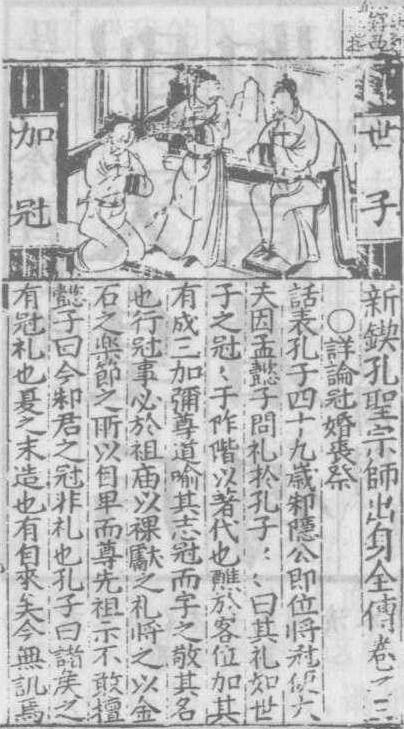 世子
加冠
新鍥孔聖宗師出身全傳卷之三
○詳論冠婚喪祭
話表孔子四十九歲邾隱公即位將冠使大
夫因孟懿子問礼扵孔子〻〻曰其礼如世
子之冠〻于阼階以著代也醮於客位加其
有成三加彌尊道喻其志冠而字之敬其名
也行冠事必於祖庙以祼獻之礼將之以金
石之樂節之所以自卑而尊先祖示不敢擅
懿子曰今邾君之冠非礼也孔子曰諸矦之
有冠礼也夏之末造也有自來矣今無訊焉